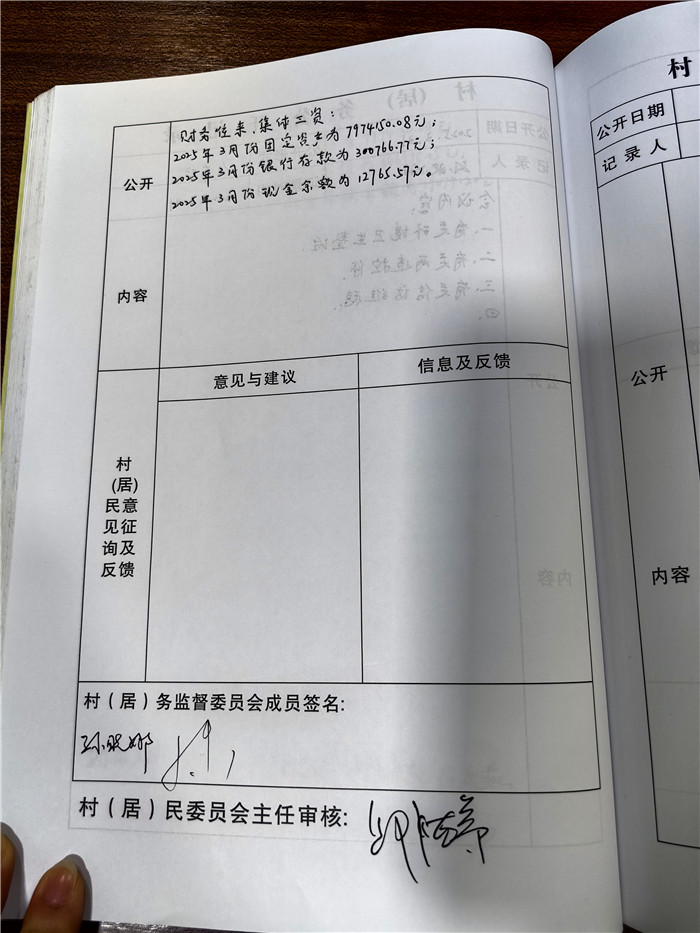 公开
内容
财务往来,集体三资:
2025年3月份固定资产为7974150.08元;
2025年3月份银行存款为300766.77元;
2025年3月份现金余额为12765.57元。
意见与建议
信息及反馈
村
(居)
民意
见征
询及
反馈
村(居)务监督委员会成员签名:
村(居)民委员会主任审核:
村
公开日期
记录人
公开
内容